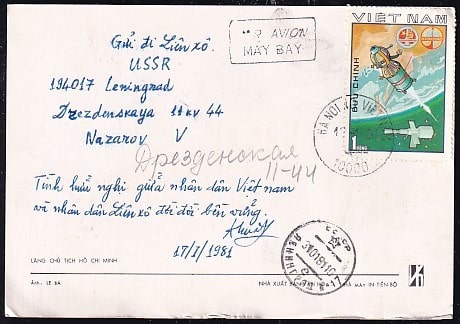 Gửi đi Liên xô
USSR
194017 Leningrad
Drezdenskaya 11 кv 44
Nazarov V
Дрезденская
11-44
Tình hữu nghị giữa nhân dân Việt nam
và nhân dân Liên xô đời đời bền vững.
17/1/1981
PAR AVION
MÁY BAY
VIỆT NAM
BƯU CHÍNH
1
ĐỒNG
HANOI
10000
LĂNG CHỦ TỊCH HỒ CHÍ MINH
Ảnh: LÊ BÁ
NHÀ XUẤT BẢN VĂN HÓA
NHÀ MÁY IN TIẾN BỘ